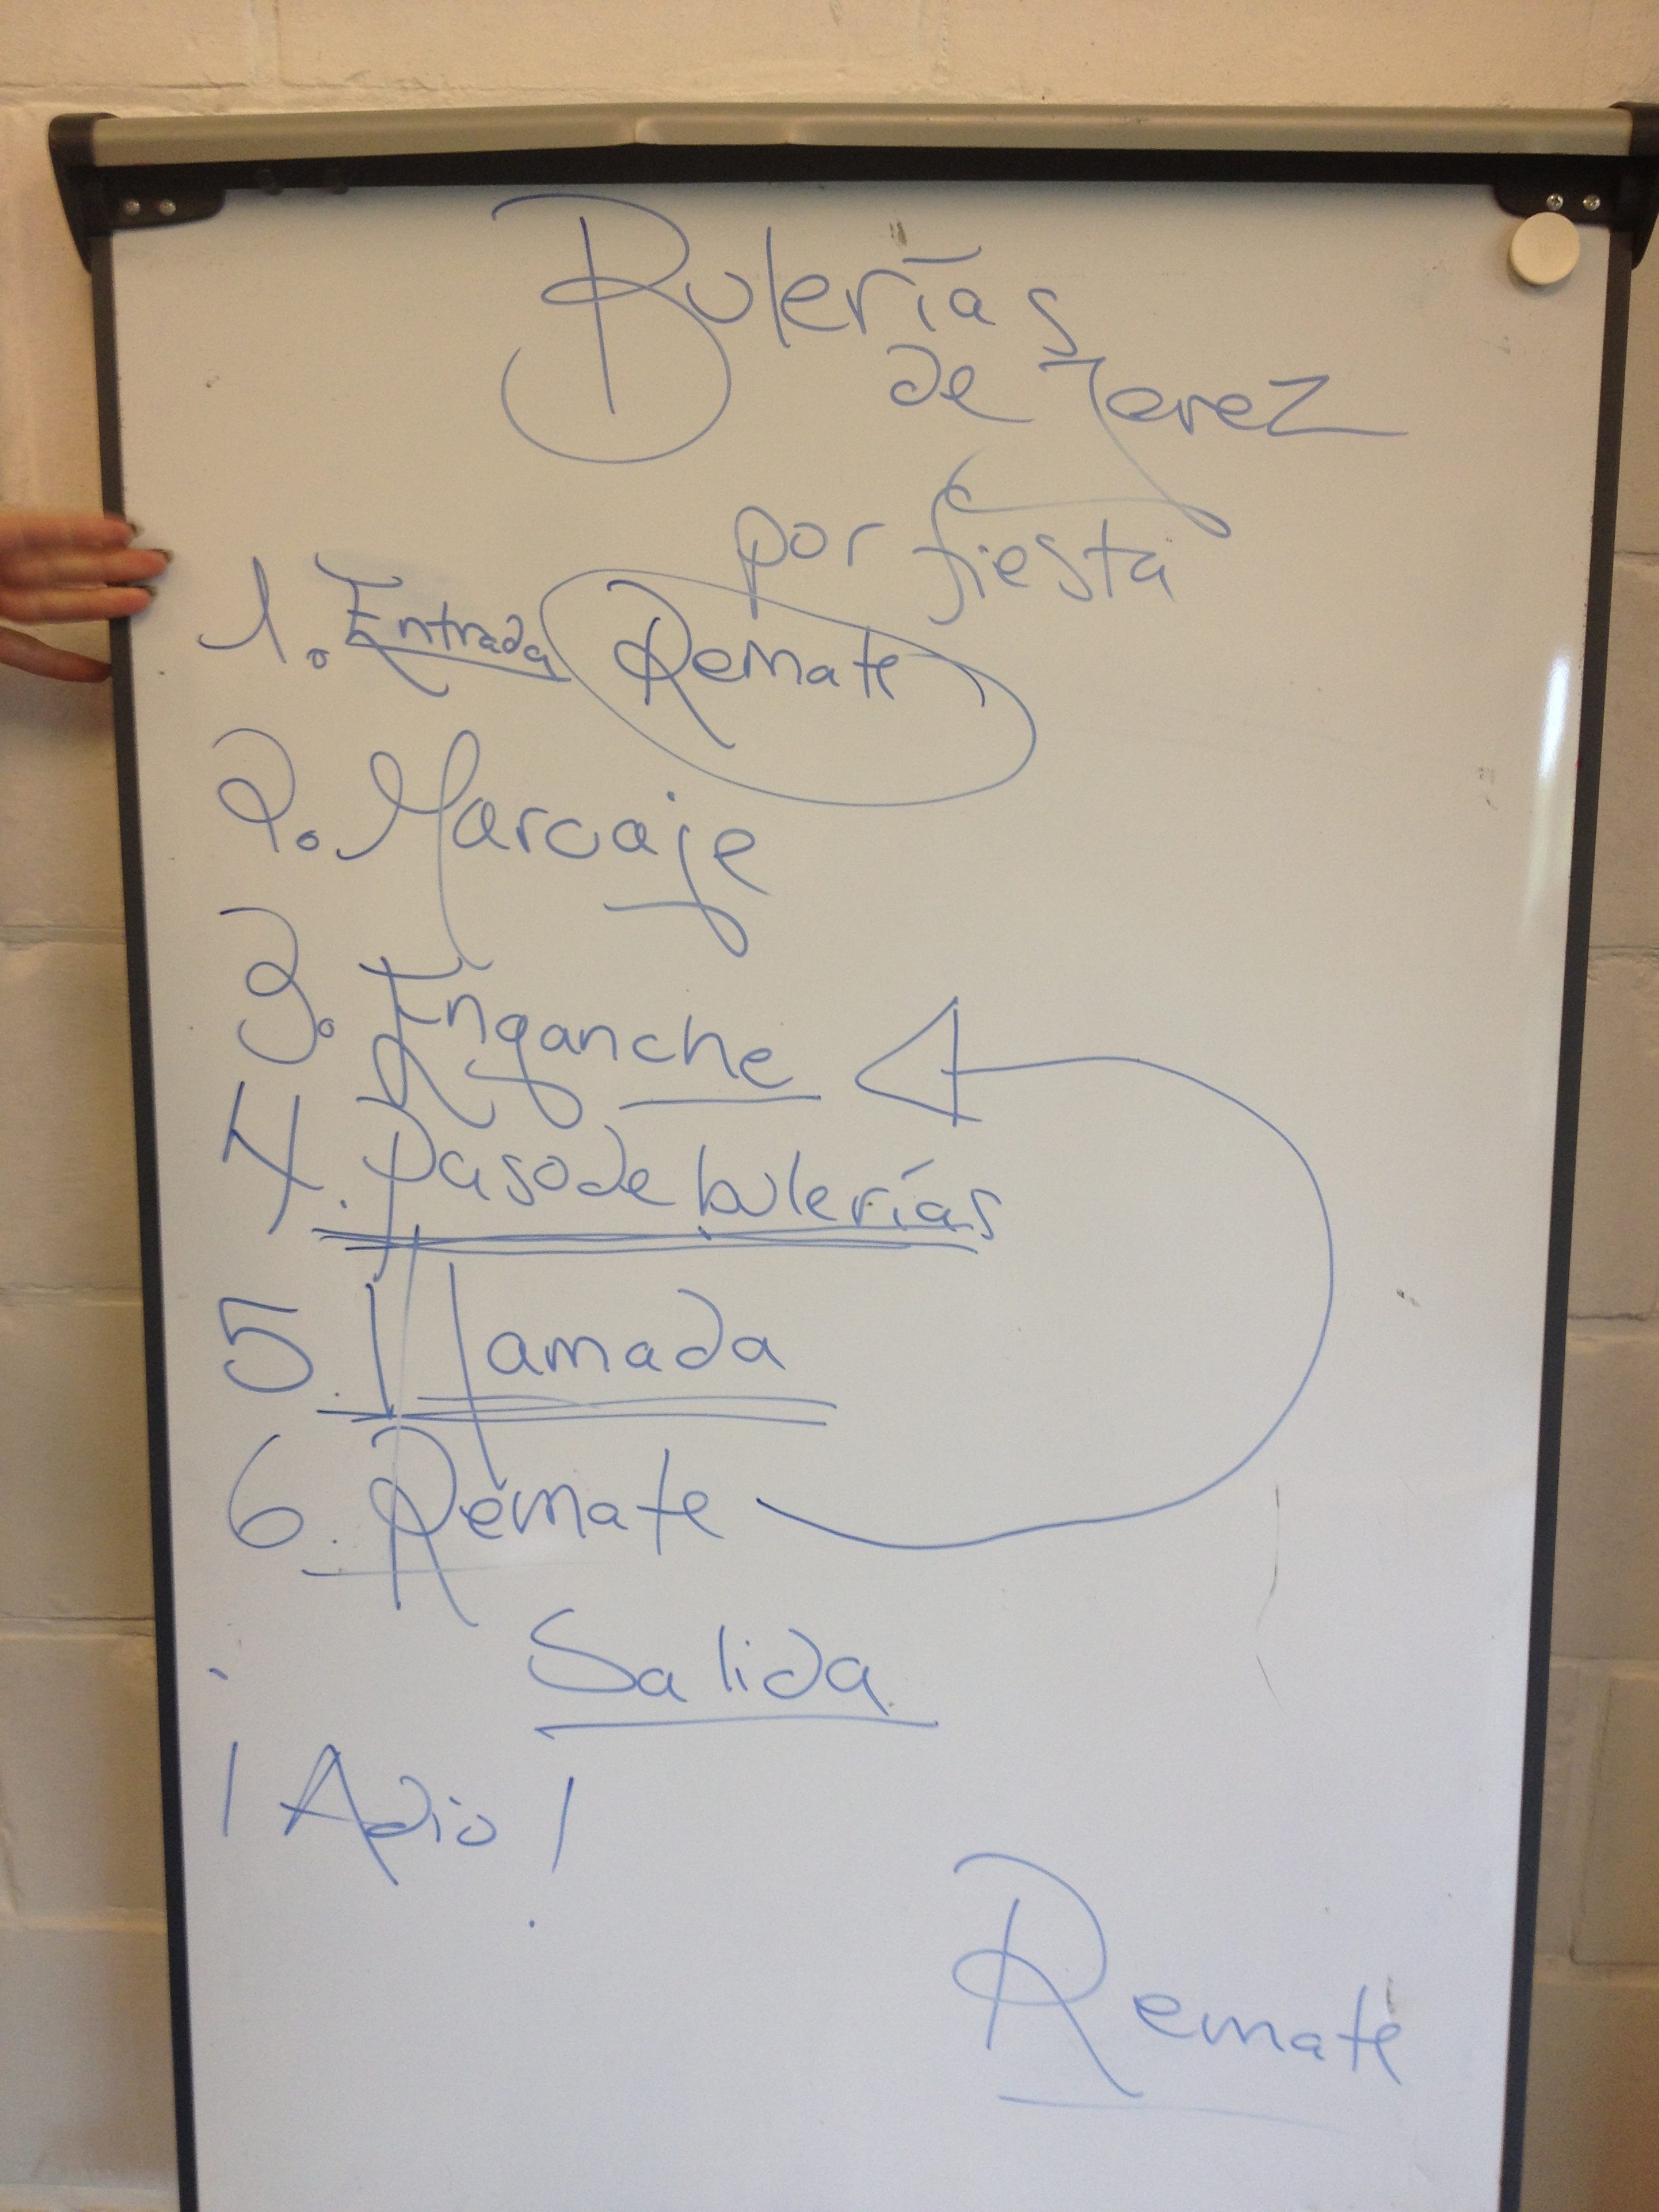 Bulerías
de Jerez
por fiesta
1. Entrada Remate
2. Marcaje
3. Enganche
4. Paso de bulerías
5. Llamada
6. Remate
Salida
¡Adio!
Remate